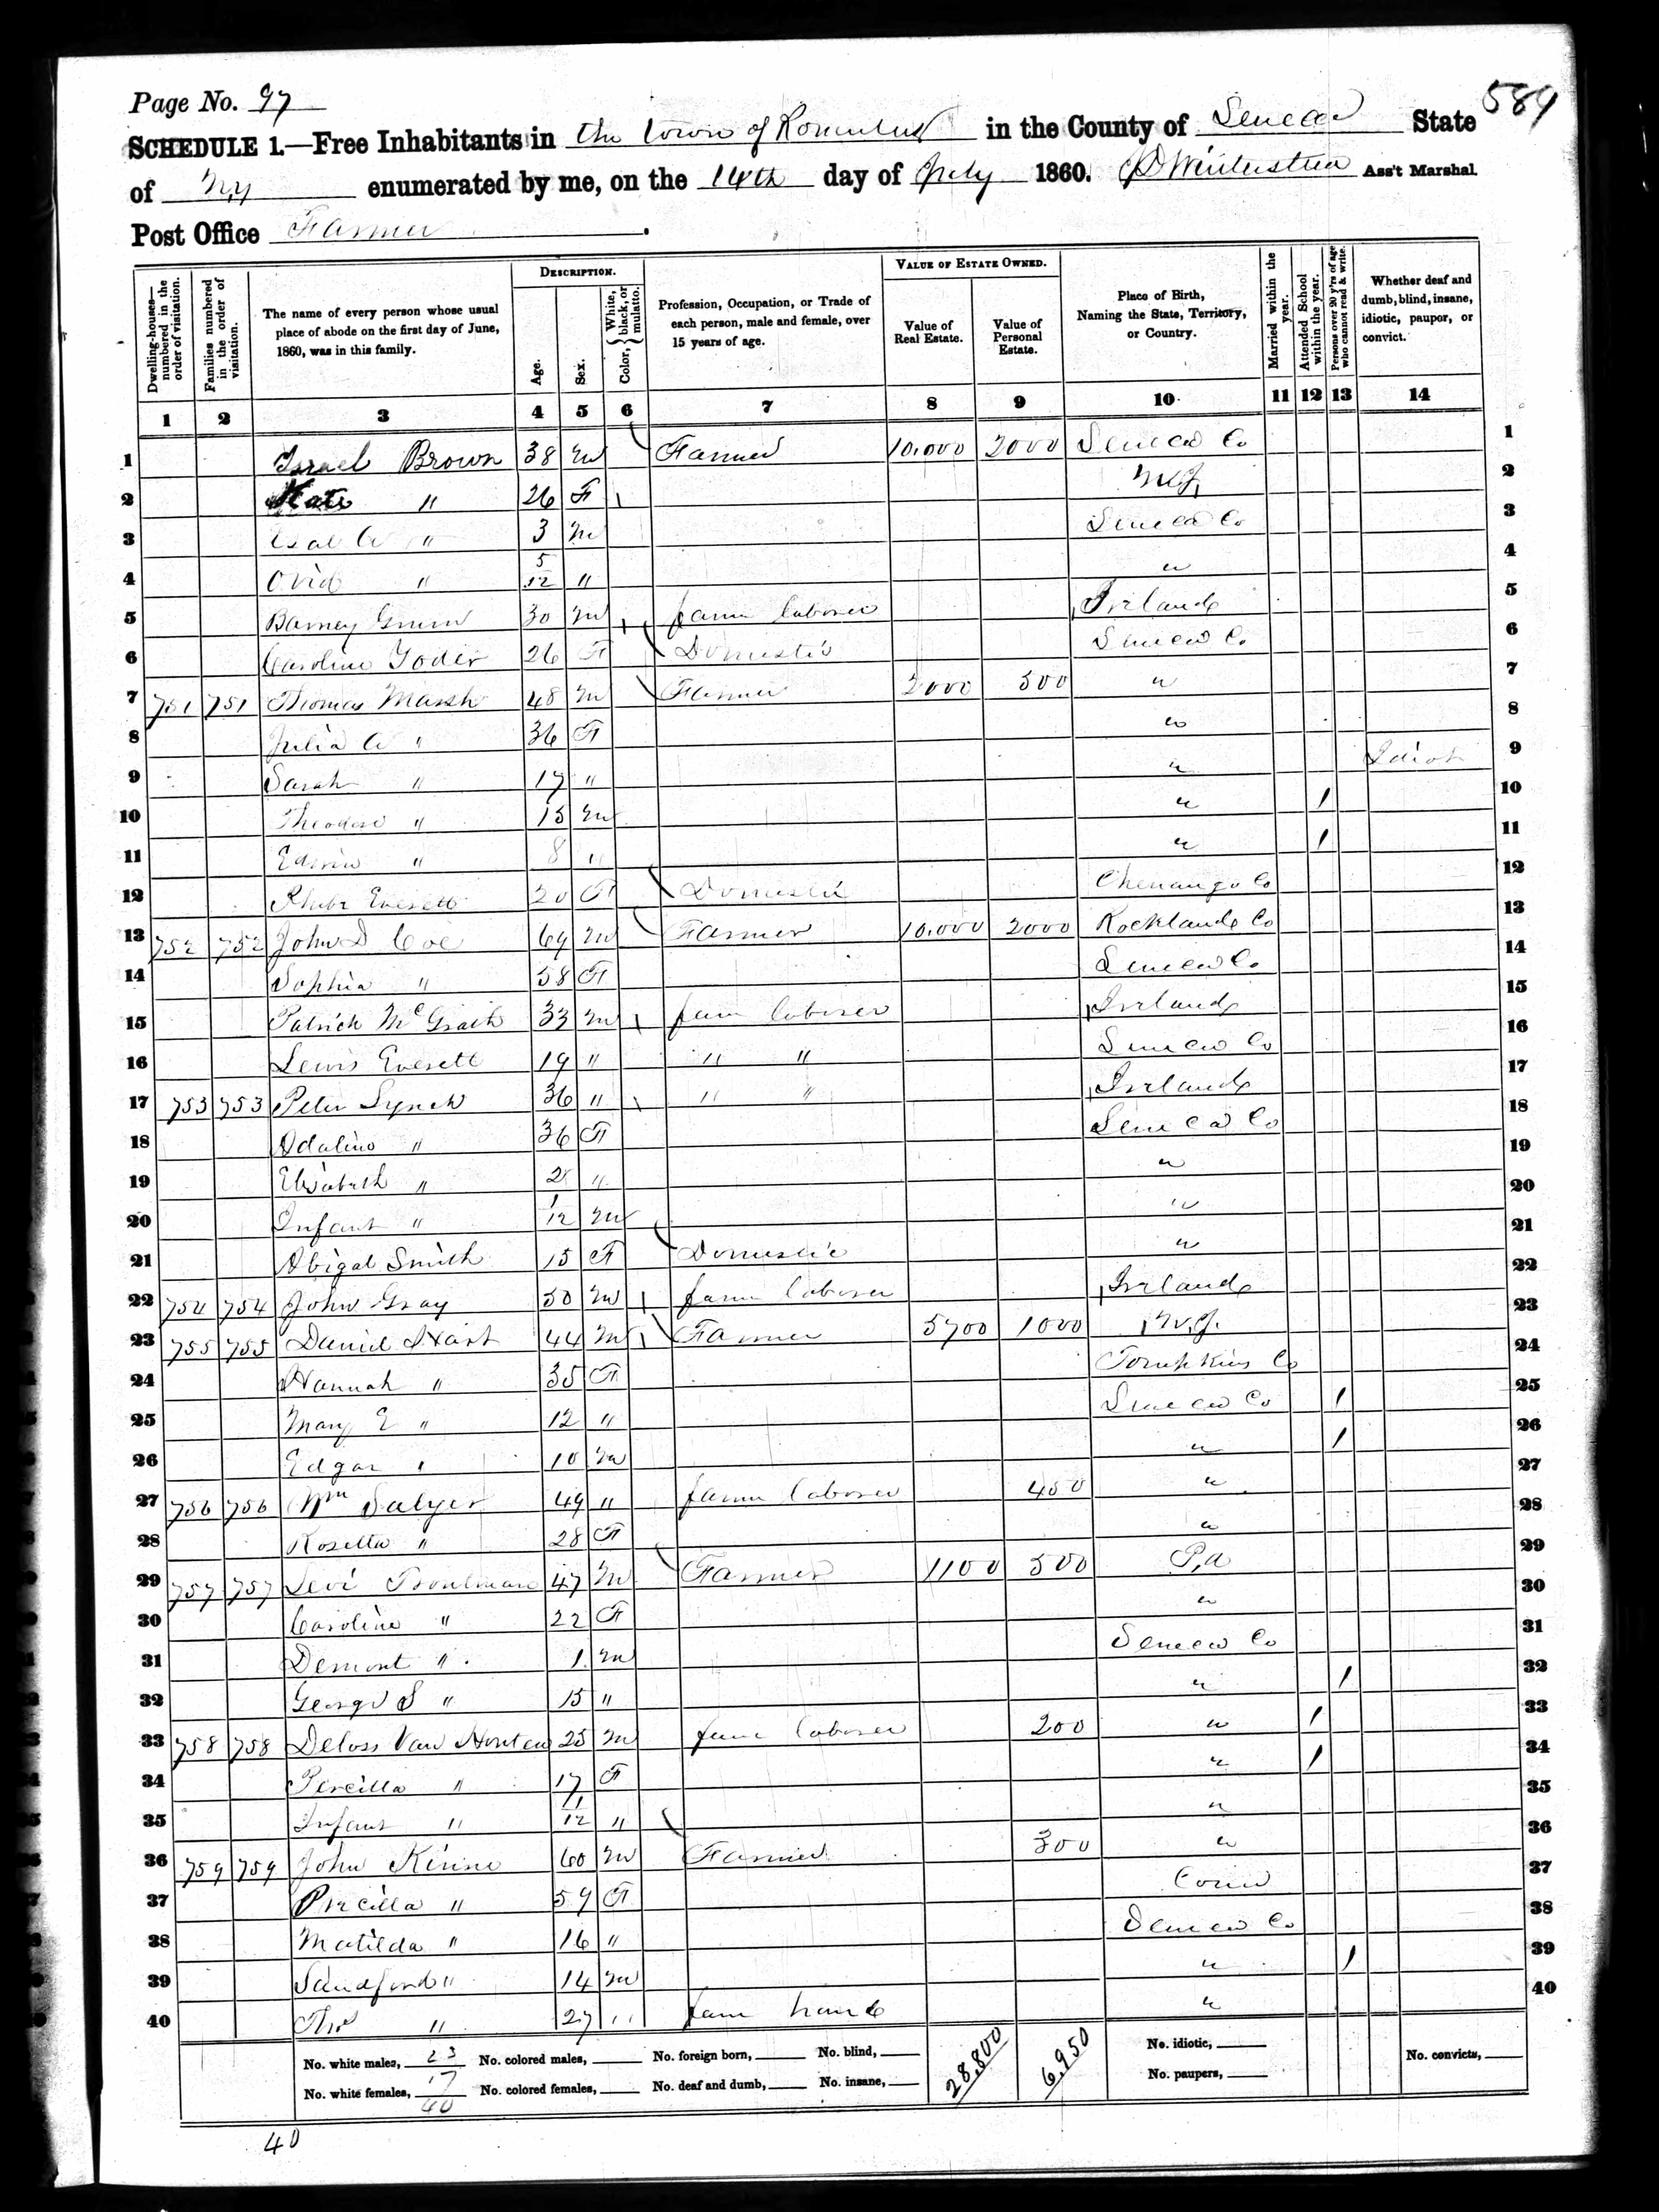 Page No. 97
589
SCHEDULE 1.—Free Inhabitants in the town of Romulus in the County of Seneca State
of N,y enumerated by me, on the 14th day of July 1860. Ass't Marshal.
Post Office Farmer .
DESCRIPTION. VALUE OF ESTATE OWNED.
Dwelling-houses—numbered in the order of visitation. Families numbered in the order of visitation. The name of every person whose usual place of abode on the first day of June, 1860, was in this family. Age. Sex. Color, { White, black, or mulatto. Profession, Occupation, or Trade of each person, male and female, over 15 years of age. Value of Real Estate. Value of Personal Estate. Place of Birth, Naming the State, Territory, or Country. Married within the year. Attended School within the year. Persons over 20 y'rs of age who cannot read & write. Whether deaf and dumb, blind, insane, idiotic, pauper, or convict.
1 2 3 4 5 6 7 8 9 10 11 12 13 14
1 Israel Brown 38 M Farmer 10.000 2000 Seneca Co 1
2 Kate " 26 F 2
3 " 3 M Seneca Co 3
4 Ovid " 5/12 " " 4
5 Barney 30 M farm laborer Irland 5
6 Caroline Yoder 26 F Domestic Seneca Co 6
7 751 751 Thomas Marsh 48 M Farmer 2000 500 " 7
8 Julia A " 36 F " 8
9 Sarah " 17 " " Idiot 9
10 Theodore " 15 M " / 10
11 Edwin " 8 " " / 11
12 Everett 20 F Domestic Chenango Co 12
13 752 752 John D Coe 64 M Farmer 10.000 2000 Rockland Co 13
14 Sophia " 58 F Seneca Co 14
15 Patrick McGrath 33 M farm laborer Irland 15
16 Lewis Everett 19 " " " Seneca Co 16
17 753 753 Peter Lynch 36 " " " Irland 17
18 Adaline " 36 F Seneca Co 18
19 Elisabeth " 2 " " 19
20 Infant " 1/12 M " 20
21 Abigal Smith 15 F Domestic " 21
22 754 754 John Gray 50 M farm laborer Irland 22
23 755 755 Daniel 44 M Farmer 5700 1000 N.J. 23
24 Hannah " 35 F Tompkins Co 24
25 Mary E " 12 " Seneca Co / 25
26 Edgar " 10 M " / 26
27 756 756 Wm Salyer 49 " farm laborer 450 " 27
28 Rosetta " 28 F " 28
29 757 757 Levi Troutman 47 M Farmer 1100 500 P,a 29
30 Caroline " 22 F " 30
31 Demont " 1 M Seneca Co 31
32 George S " 15 " " / 32
33 758 758 Deloss Van Houten 25 M farm laborer 200 " / 33
34 Percilla " 17 F " / 34
35 Infant " 11/12 " " 35
36 759 759 John Kinne 60 M Farmer 300 " 36
37 Prcilla " 59 F Conn 37
38 Matilda " 16 " Seneca Co 38
39 Sandford " 14 M " / 39
40 Thos " 27 " farm hand " 40
No. white males, 23 No. colored males, No. foreign born, No. blind, 28,800 6,950 No. idiotic, No. convicts,
No. white females, 17 No. colored females, No. deaf and dumb, No. insane, No. paupers,
40
40